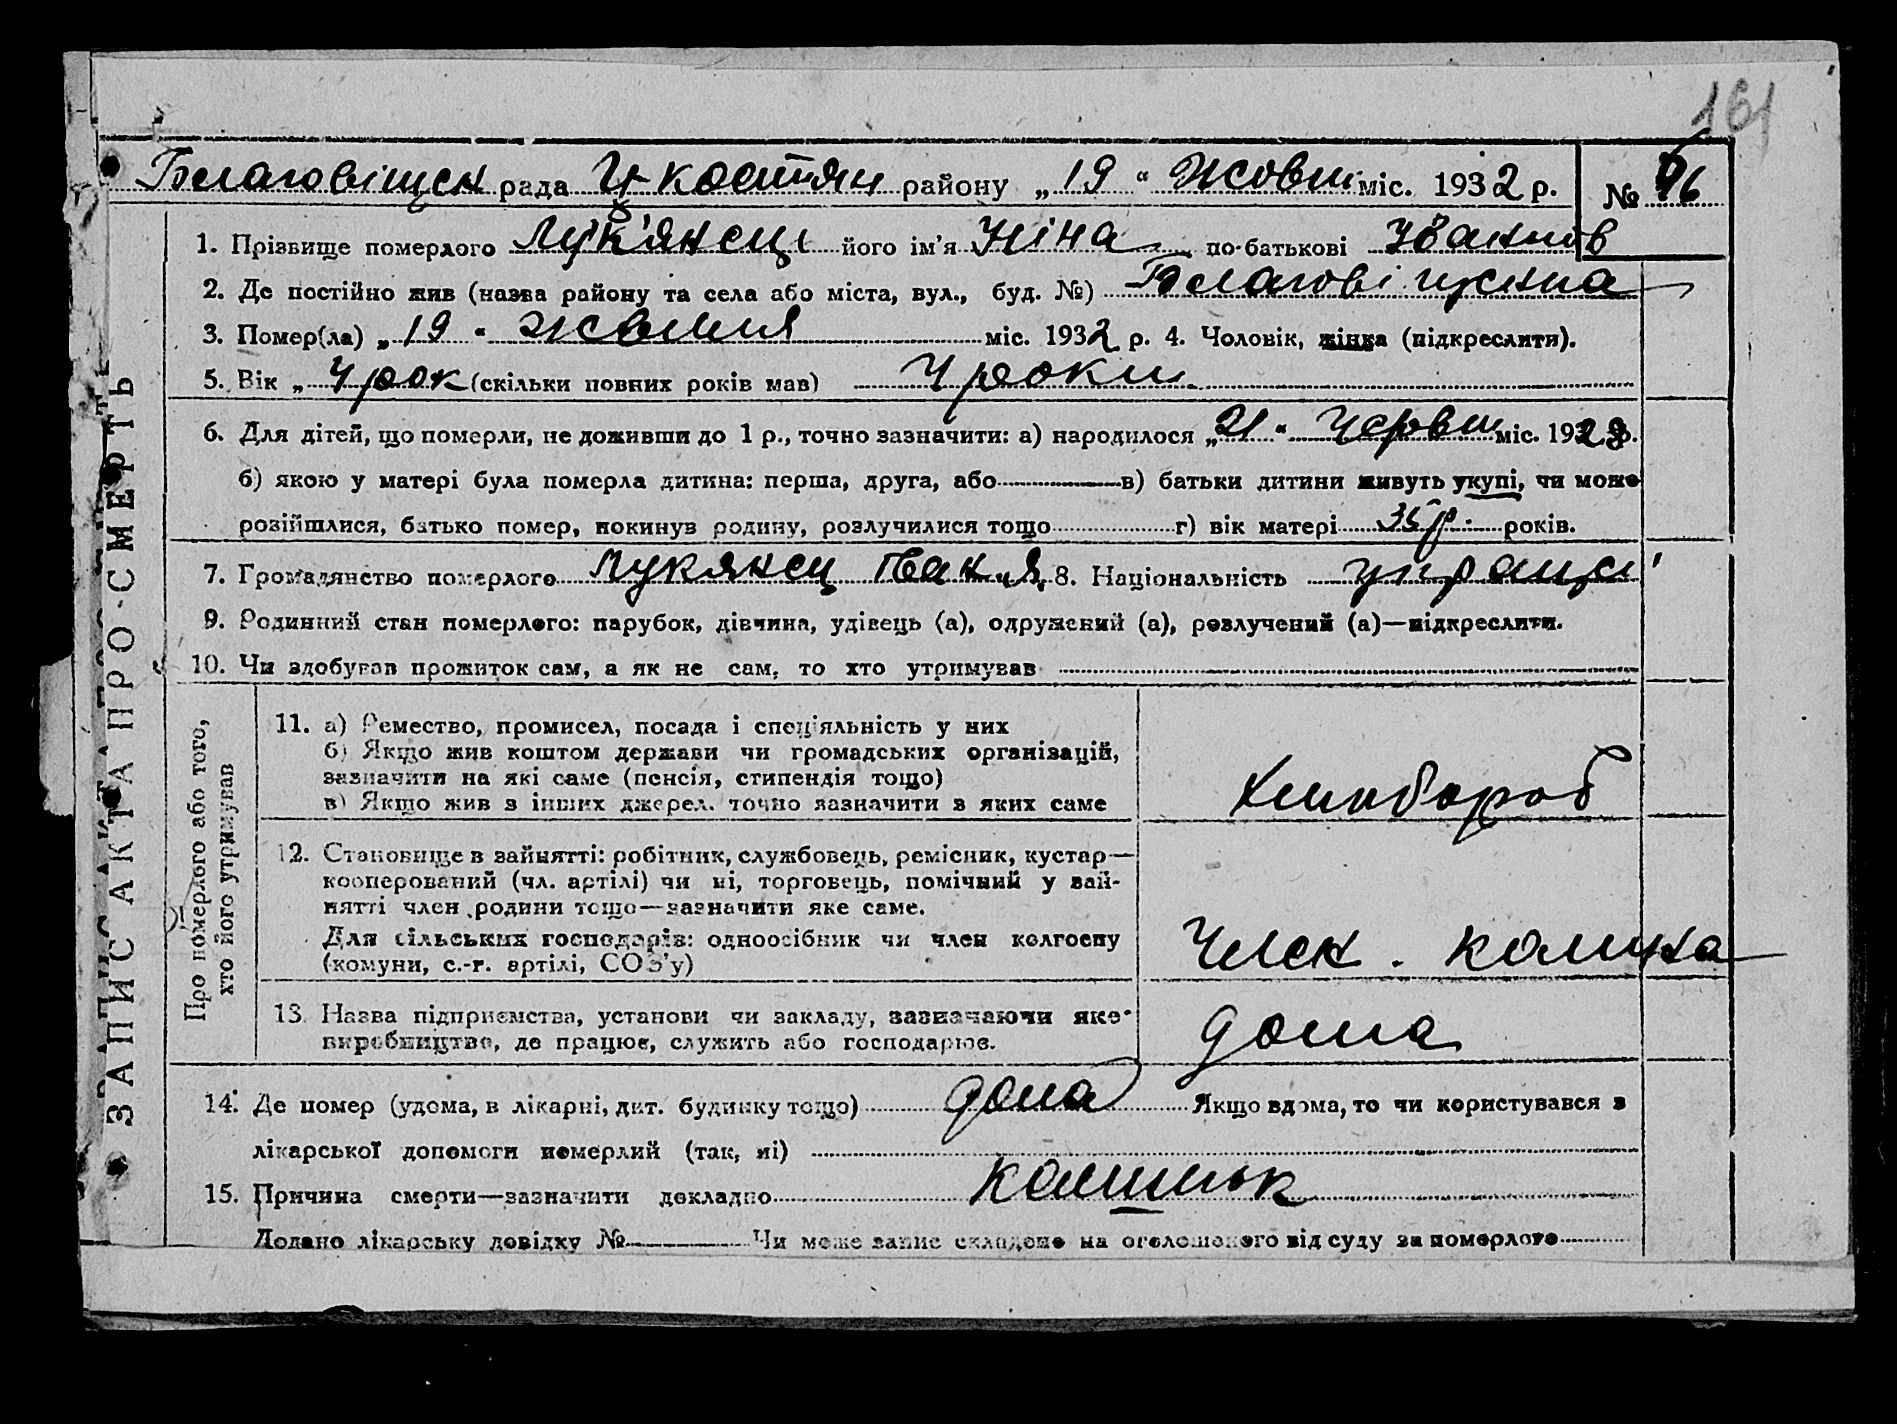 161
Благовіщен рада Ч костян району „ 19 “ Жовтн міс. 1932 р. № 96
1. Прізвище померлого Лук'янець його ім'я Ніна по-батькові Іванов
2. Де постійно жив (назва району та села або міста, вул., буд. №) Благовіщенка
3. Помер(ла) „ 19 “ жовтня міс. 1932 р. 4. Чоловік, жінка (підкреслити).
5. Вік „ 4 рок (скільки повних років мав) 4 роки
6. Для дітей, що померли, не доживши до 1 р., точно зазначити: а) народилося „ 21 “ Червн міс. 1928 р.
б) якою у матері була померла дитина: перша, друга, або в) батьки дитини живуть укупі, чи може
розійшлися, батько помер, покинув родину, розлучилися тощо г) вік матері 35 р. років.
7. Громадянство померлого Лукянец Іван Я. 8. Національність украцн
9. Родинний стан померлого: парубок, дівчина, удівець (а), одружений (а), розлучений (а)—підкреслити.
10. Чи здобував прожиток сам, а як не сам, то хто утримував
ЗАПИС АКТА ПРО СМЕРТЬ
Про померлого або того,
хто його утримував
11. а) Ремество, промисел, посада і спеціяльність у них
б) Якщо жив коштом держави чи громадських організацій,
зазначити на які саме (пенсія, стипендія тощо)
в) Якщо жив з інших джерел, точно зазначити з яких саме
Хлібороб
12. Становище в зайнятті: робітник, службовець, ремісник, кустар—
кооперований (чл. артілі) чи ні, торговець, помічний у зай-
нятті член родини тощо—зазначити яке саме.
Для сільських господарів: одноосібник чи член колгоспу
(комуни, с.-г. артілі, СОЗ'у)
Член . колгосп
13. Назва підприємства, установи чи закладу, зазначаючи яке
виробництво, де працює, служить або господарює.
дома
14. Де помер (удома, в лікарні, дит. будинку тощо) дома Якщо вдома, то чи користувався з
лікарської допомоги померлий (так, ні)
15. Причина смерти—зазначити докладно
Додано лікарську довідку № Чи може запис складено на оголошеного від суду за померлого